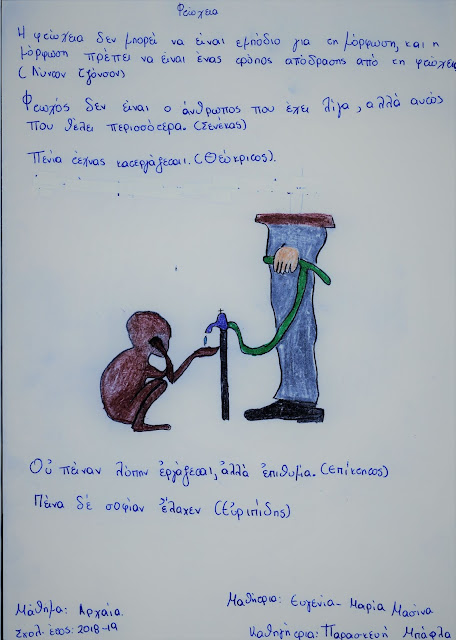 Φτώχεια
Η φτώχεια δεν μπορεί να είναι εμπόδιο για τη μόρφωση, και η
μόρφωση πρέπει να είναι ένας τρόπος απόδρασης από τη φτώχεια
(Λύνων Τζόνσον)
Φτωχός δεν είναι ο άνθρωπος που έχει λίγα, αλλά αυτός
που θέλει περισσότερα. (Σενέκας)
Πενία τέχνας κατεργάζεται. (Θεόκριτος).
Οὐ πείναν λύπην ἐργάζεται, ἀλλά ἐπιθυμία. (Επίκτητος)
Πείνα δέ σοφίαν ἔλαχεν (Εὐριπίδης)
Μάθημα: Αρχαία.
Σχολ. έτος: 2018-19
Μαθήτρια: Ευγενία-Μαρία Μασίνα
Καθηγήτρια: Παρασκευή Μπάφλα